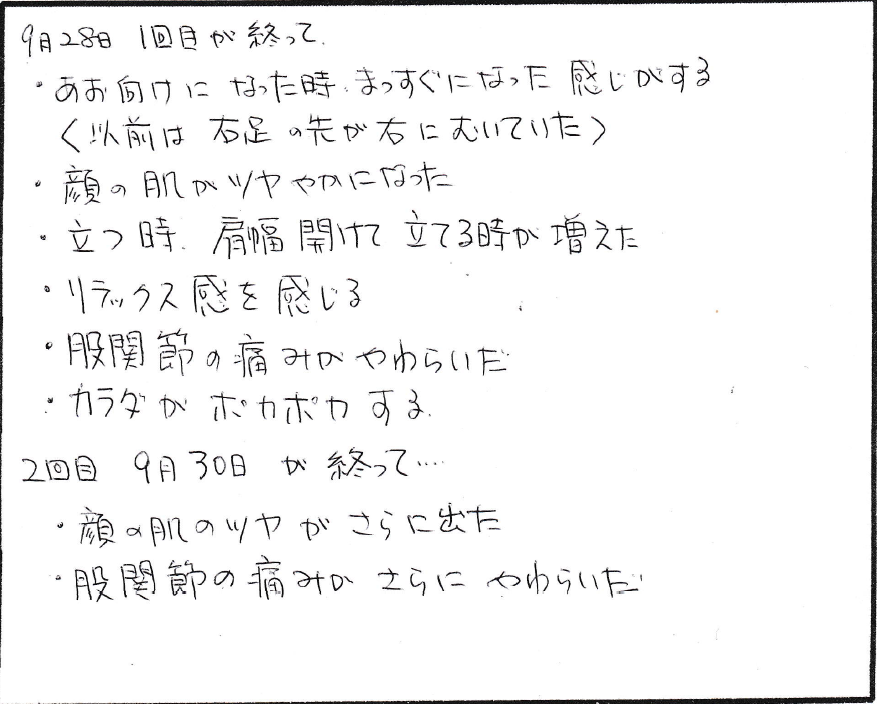 9月28日 1回目が終って.
・あお向けに なった時、まっすぐになった 感じがする
〈以前は 右足の先が右にむいていた〉
・顔の肌がツヤやかになった
・立つ時、肩幅開けて 立てる時が増えた
・リラックス感を感じる
・股関節の痛みがやわらいだ
・カラダが ポカポカする.
2回目 9月30日 が 終って…
・顔の肌のツヤが さらに出た
・股関節の痛みが さらに やわらいだ